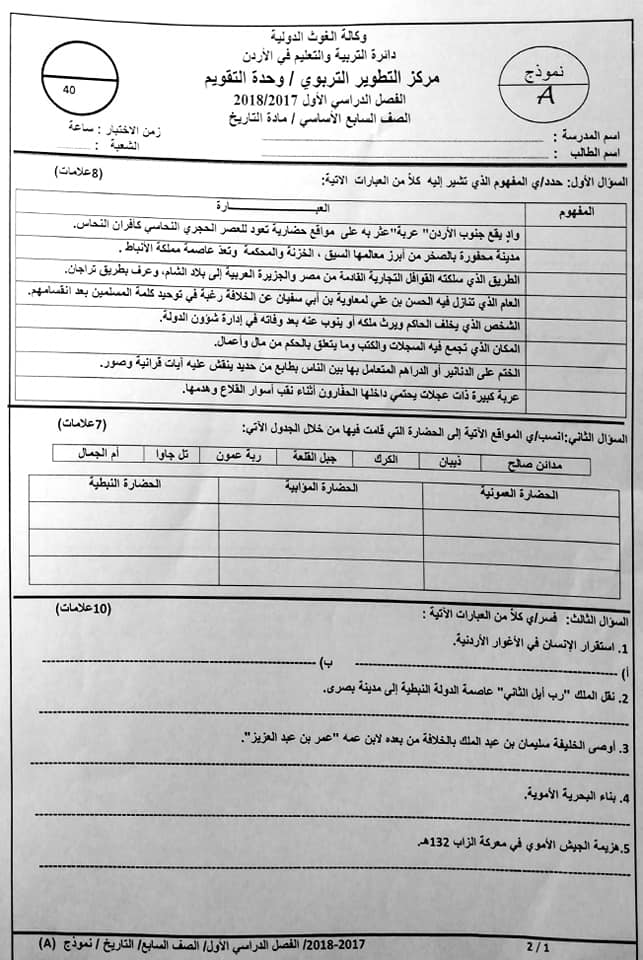 وكالة الغوث الدولية
دائرة التربية والتعليم في الأردن
مركز التطوير التربوي / وحدة التقويم
الفصل الدراسي الأول 2018/2017
الصف السابع الأساسي / مادة التاريخ
نموذج
A
40
زمن الاختبار : ساعة
الشعبة :
اسم المدرسة :
اسم الطالب :
السؤال الأول: حدد/ي المفهوم الذي تشير إليه كلاً من العبارات الاتية: (8علامات)
المفهوم العبـــارة
وادٍ يقع جنوب الأردن" عربة"عثر به على مواقع حضارية تعود للعصر الحجري النحاسي كأفران النحاس.
مدينة محفورة بالصخر من أبرز معالمها السيق ، الخزنة والمحكمة وتعدّ عاصمة مملكة الأنباط .
الطريق الذي سلكته القوافل التجارية القادمة من مصر والجزيرة العربية إلى بلاد الشام، وعرف بطريق تراجان.
العام الذي تنازل فيه الحسن بن علي لمعاوية بن أبي سفيان عن الخلافة رغبة في توحيد كلمة المسلمين بعد انقسامهم.
الشخص الذي يخلف الحاكم ويرث ملكه أو ينوب عنه بعد وفاته في إدارة شؤون الدولة.
المكان الذي تجمع فيه السجلات والكتب وما يتعلق بالحكم من مال وأعمال.
الختم على الدنانير أو الدراهم المتعامل بها بين الناس بطابع من حديد ينقش عليه آيات قرانية وصور.
عربة كبيرة ذات عجلات يحتمي داخلها الحفارون أثناء نقب أسوار القلاع وهدمها.
السؤال الثاني:انسب/ي المواقع الآتية إلى الحضارة التي قامت فيها من خلال الجدول الآتي: (7علامات)
مدائن صالح ذيبان الكرك جبل القلعة ربة عمون تل جاوا أم الجمال
الحضارة العمونية الحضارة المؤابية الحضارة النبطية
السؤال الثالث: فسر/ي كلاً من العبارات الآتية : (10علامات)
1. استقرار الإنسان في الأغوار الأردنية.
أ) ب)
2. نقل الملك "رب أيل الثاني" عاصمة الدولة النبطية إلى مدينة بصرى.
3. أوصى الخليفة سليمان بن عبد الملك بالخلافة من بعده لابن عمه "عمر بن عبد العزيز".
4. بناء البحرية الأموية.
5.هزيمة الجيش الأموي في معركة الزاب 132هـ.
2 / 1 2017-2018/ الفصل الدراسي الأول/ الصف السابع/ التاريخ / نموذج (A)